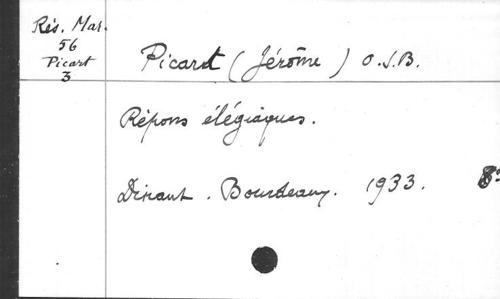 Rés. Mar.
56
Picart
3
Picard (Jérôme) O.S.B.
Répons élégiaques.
Dinant. Bourdeaux. 1933. 8º